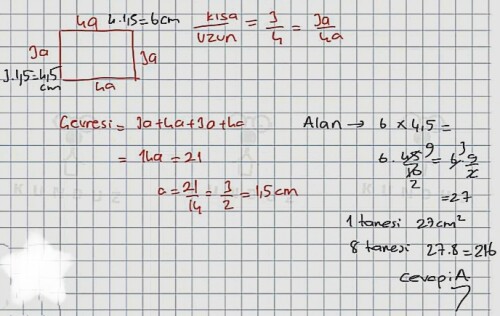 4a 4.1,5=6cm
3a
3a
3.1,5=4,5 cm
4a
kısa/uzun = 3/4 = 3a/4a
Çevresi= 3a+4a+3a+4a
= 14a = 21
a= 21/14 = 3/2 = 1,5cm
Alan → 6 x 4,5 =
6. 45/10 9 2 = 6 3 9/2
= 27
1 tanesi 27cm²
8 tanesi 27.8=216
cevap: A
KUNDUZ
KUNDUZ